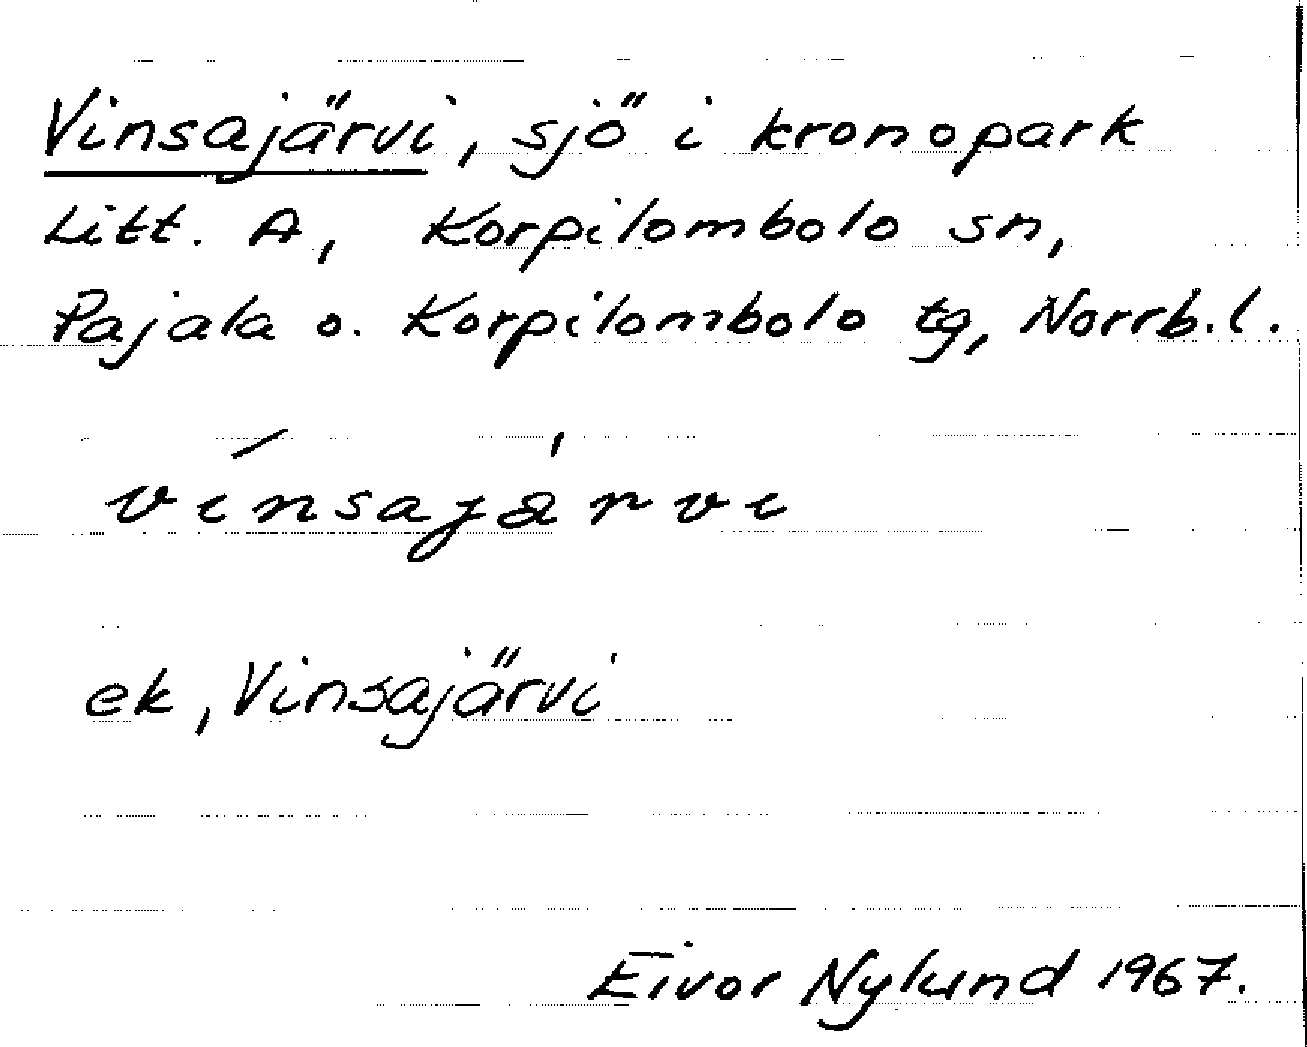 Vinsajärvi, sjö i kronopark
Litt. A, Korpilombolo sn,
Pajala o. Korpilombolo tg, Norrb.l.
vínsajárvi
ek, Vinsajärvi
Eivor Nylund 1967.